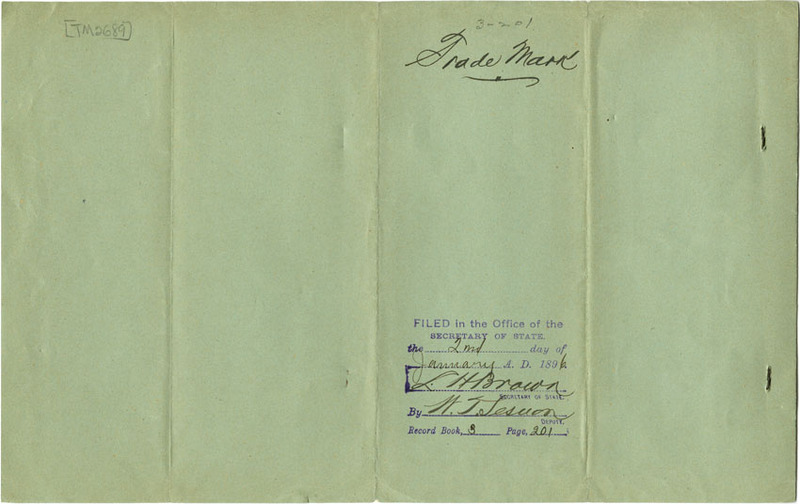 [TM2689]
3-201
Trade Mark
FILED in the Office of the
SECRETARY OF STATE,
the 2nd day of
January A. D. 1896
L. H. Brown
SECRETARY OF STATE.
By W. T.
DEPUTY.
Record Book, 3 Page, 201